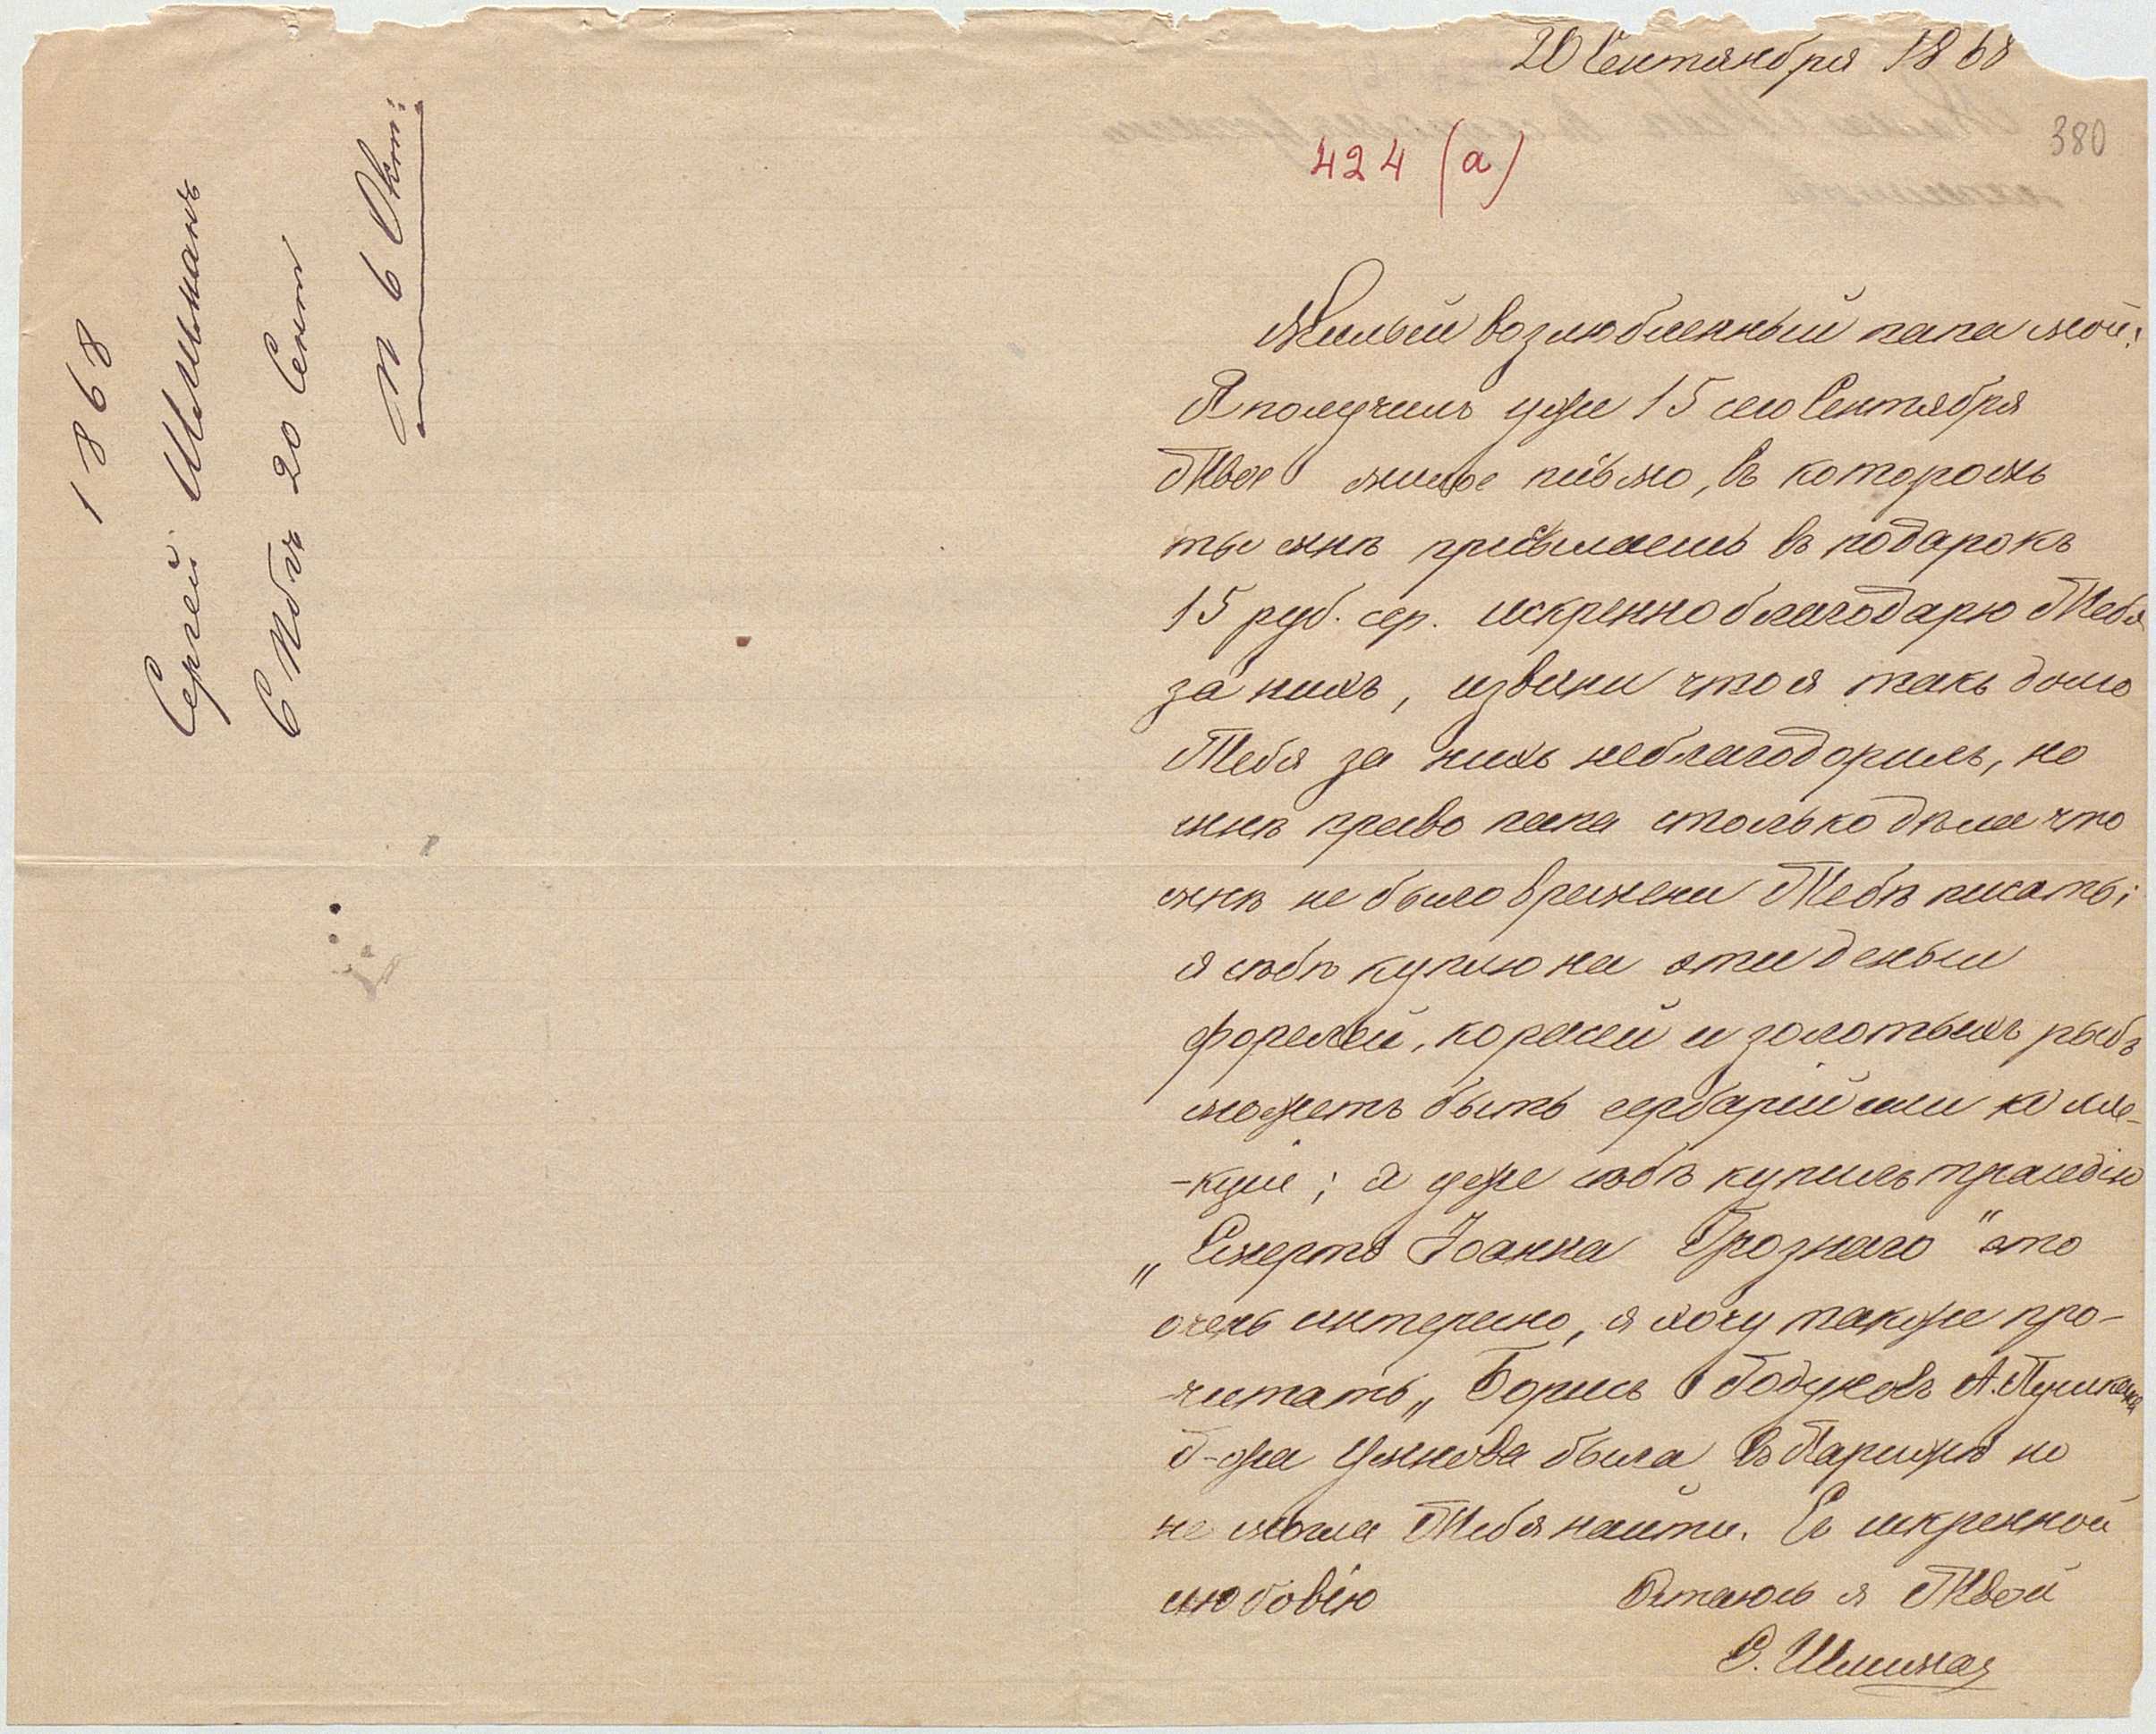 1868
Сергей Шлиманъ
С Пбгъ 20 Сент
п 6 Окт:
20 Сентября 1868
380
424 (а)
Милый возлюбленный папа мой!
Я получилъ уже 15 сего Сентября
Твое милое письмо, въ которомъ
ты мнѣ присылаешь въ подарокъ
15 руб. сер. искренно благодарю Тебя
за нихъ, извини что я такъ долго
Тебя за нихъ неблагодорилъ, но
мнѣ право папа столько дѣла что
мнѣ не было времени Тебѣ писать;
я собѣ куплю на эти деньги
форелей, корасей и золотыхъ рыбъ
можетъ быть гербарій или колле-
-кціе; я уже собѣ купилъ трагедію
„Смерть Іоанна Грознаго" это
очень интересно, я хочу также про-
-читать „Борисъ Годуновъ А. Пушкина
Г-жа Умнова была въ Парижѣ но
не могла Тебя найти. Съ искренной
любовію Остаюсь я Твой
С. Шлиман